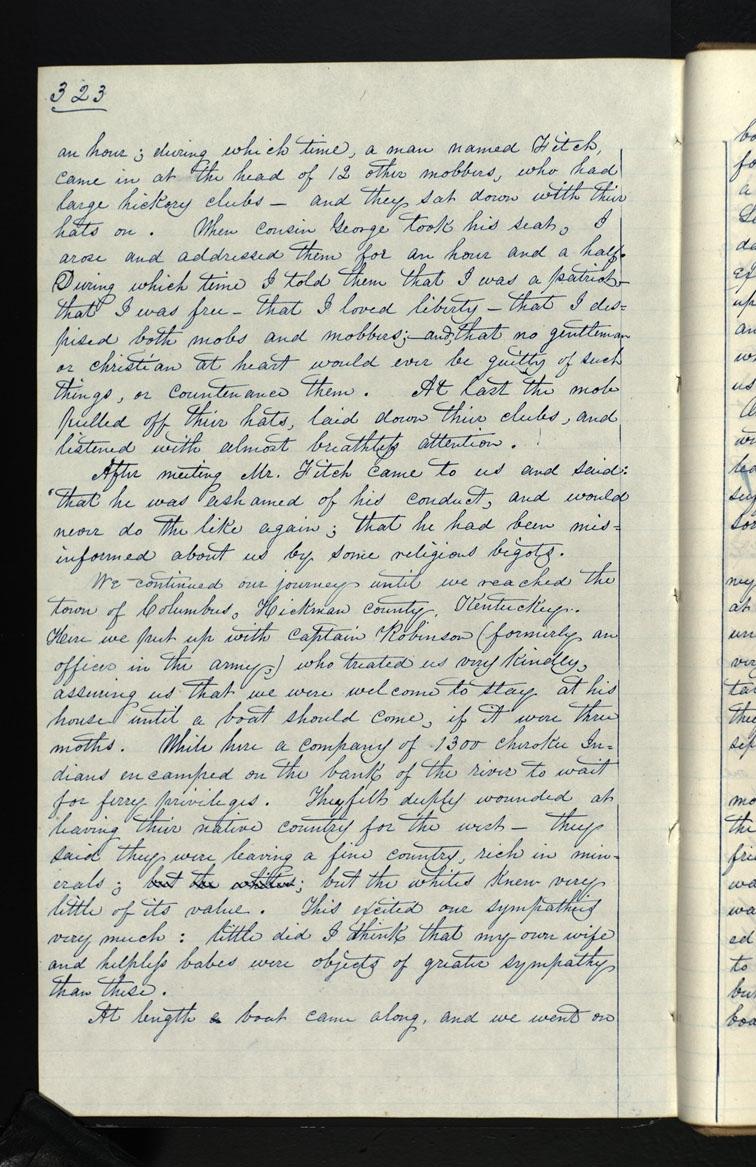 323
an hour; during which time, a man named Fitch,
came in at the head of 12 other mobbers, who had
large hickory clubs — and they sat down with their
hats on. When cousin George took his seat, I
arose and addressed them for an hour and a half.
During which time I told them that I was a patriot —
that I was free — that I loved liberty — that I des=
pised both mobs and mobbers; and, that no gentleman
or christian at heart would ever be guilty of such
things, or countenance them. At last the mob
pulled off their hats, laid down their clubs, and
listened with almost breathless attention.
After meeting Mr. Fitch came to us and said:
'that he was ashamed of his conduct, and would
never do the like again; that he had been mis=
informed about us by some religious bigots.
We continued our journey until we reached the
town of Columbus, Hickman county, Kentucky.
Here we put up with captain Robinson (formerly an
officer in the army,) who treated us very kindly,
assuring us that we were welcome to stay at his
house until a boat should come, if it were three
moths. While here a company of 1300 cherokee In=
dians encamped on the bank of the river to wait
for ferry privileges. They felt deeply wounded at
leaving their native country for the west — they
said they were leaving a fine country, rich in min=
erals; but the whites; but the whites knew very
little of its value. This excited our sympathies
very much: little did I think that my own wife
and helpless babes were objects of greater sympathy
than these.
At length a boat came along, and we went on